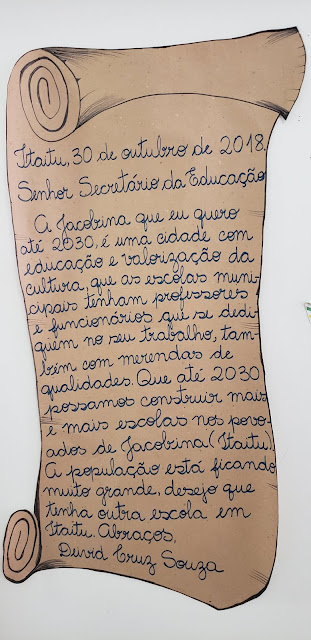 Itaitu, 30 de outubro de 2018.
Senhor Secretário da Educação
A Jacobina que eu quero
até 2030, é uma cidade com
educação e valorização da
cultura, que as escolas muni-
cipais tenham professores
e funcionários que se dedi-
quém no seu trabalho, tam-
bém com merendas de
qualidades. Que até 2030
possamos construir mais
e mais escolas nos povo-
ados de Jacobina (Itaitu).
A população está ficando
muito grande, desejo que
tenha outra escola em
Itaitu. Abraços,
Deivid Cruz Souza